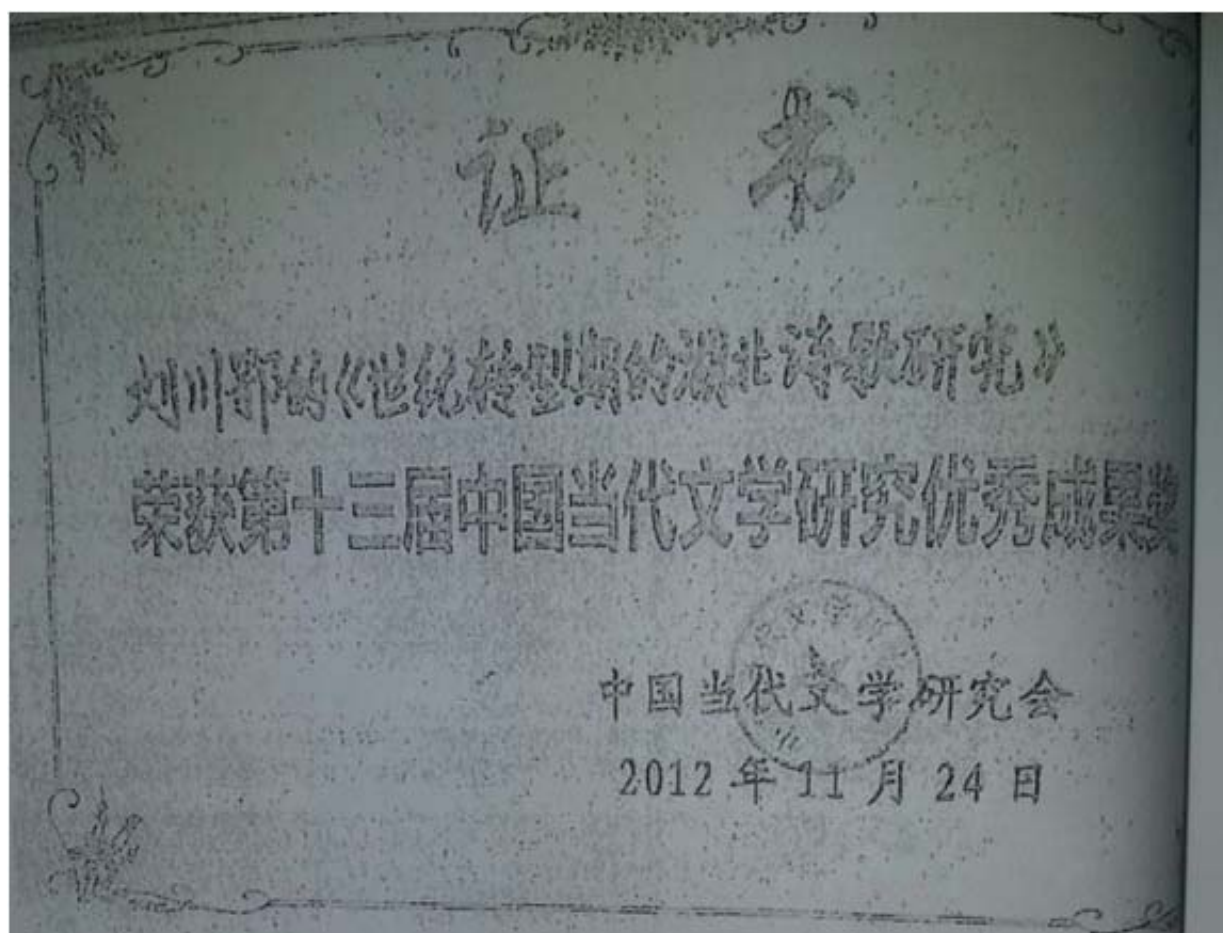 证 书
刘川鄂的《世纪转型期的湖北诗歌研究》
荣获第十三届中国当代文学研究优秀成果奖
中国当代文学研究会
2012 年 11 月 24 日